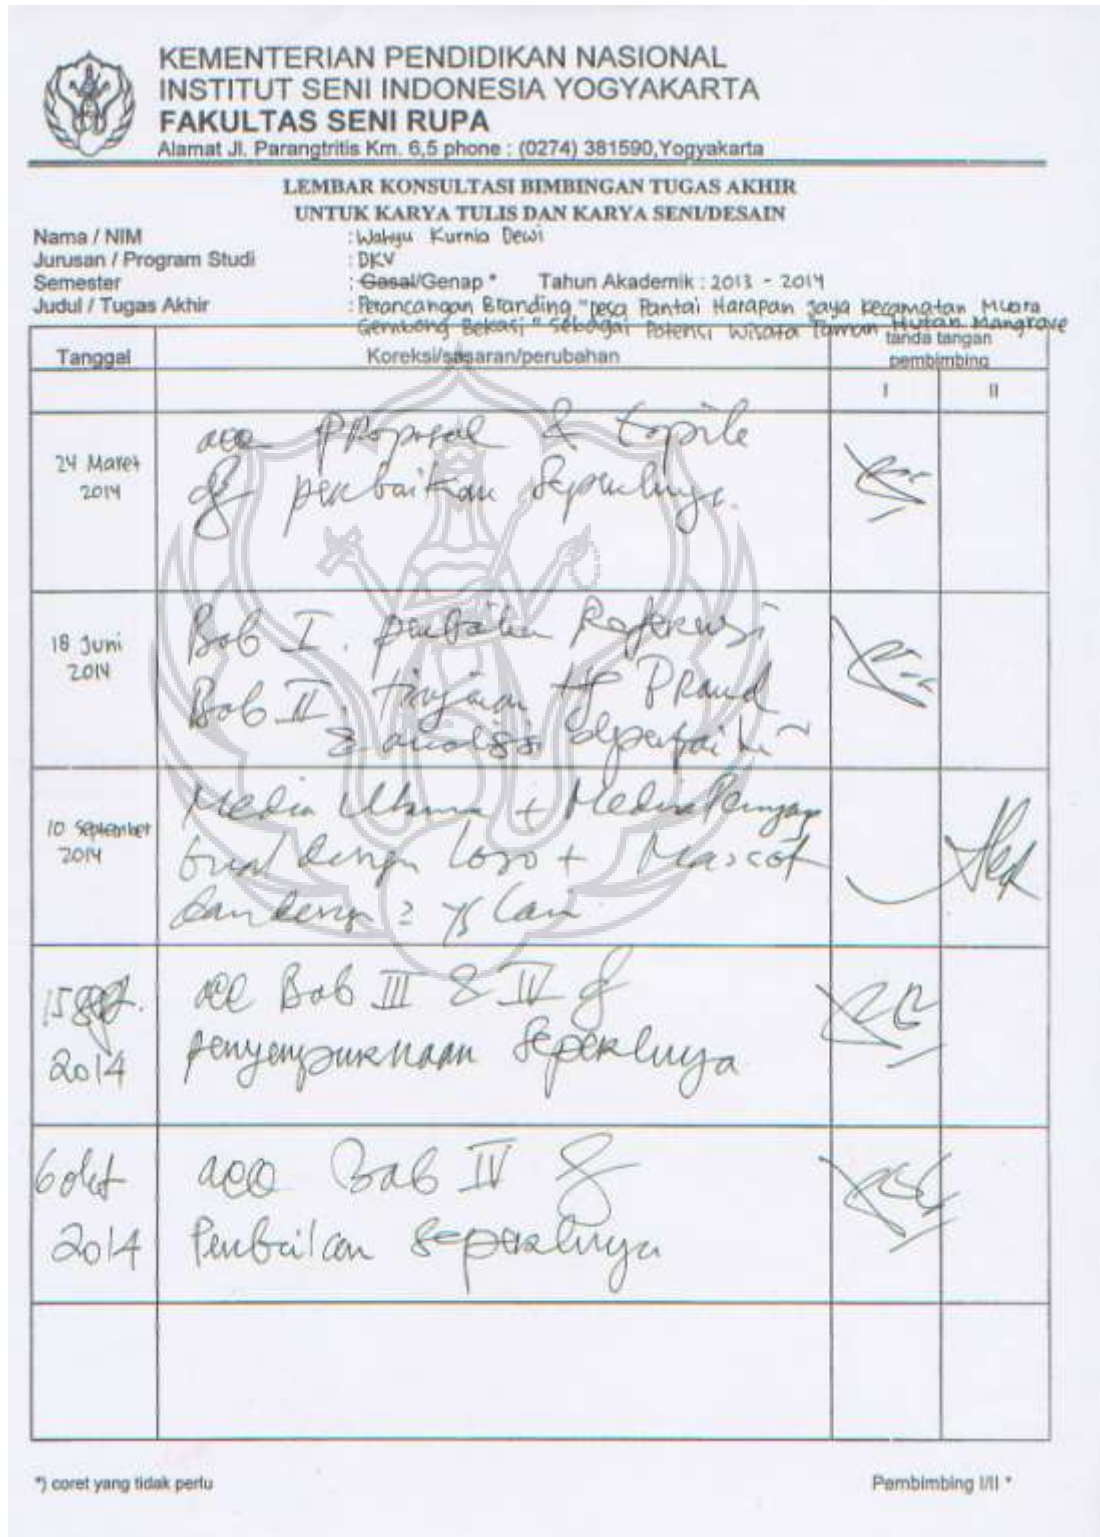 KEMENTERIAN PENDIDIKAN NASIONAL
INSTITUT SENI INDONESIA YOGYAKARTA
FAKULTAS SENI RUPA
Alamat Jl. Parangtritis Km. 6,5 phone : (0274) 381590,Yogyakarta
LEMBAR KONSULTASI BIMBINGAN TUGAS AKHIR
UNTUK KARYA TULIS DAN KARYA SENI/DESAIN
Nama / NIM : Wahyu Kurnia Dewi
Jurusan / Program Studi : DKV
Semester : Gasal/Genap * Tahun Akademik : 2013 - 2014
Judul / Tugas Akhir : Perancangan Branding "Desa Pantai Harapan Jaya Kecamatan Muara
Gembong Bekasi" sebagai Potensi Wisata Taman Hutan Mangrove
Tanggal Koreksi/sasaran/perubahan tanda tangan
pembimbing
I II
24 Maret
2014
acc proposal & topik
perbaikan seperlunya.
18 Juni
2014
Bab I. perbaikan Referensi
Bab II. tinjauan ttg Brand
& analisis
10 September
2014
Media Utama + Media
buat design logo + Mascot
dan design 2 yg lain
15 Sept.
2014
acc Bab III & IV
penyempurnaan seperlunya
6 okt
2014
acc Bab IV
Perbaikan seperlunya
*) coret yang tidak perlu
Pembimbing I/II *